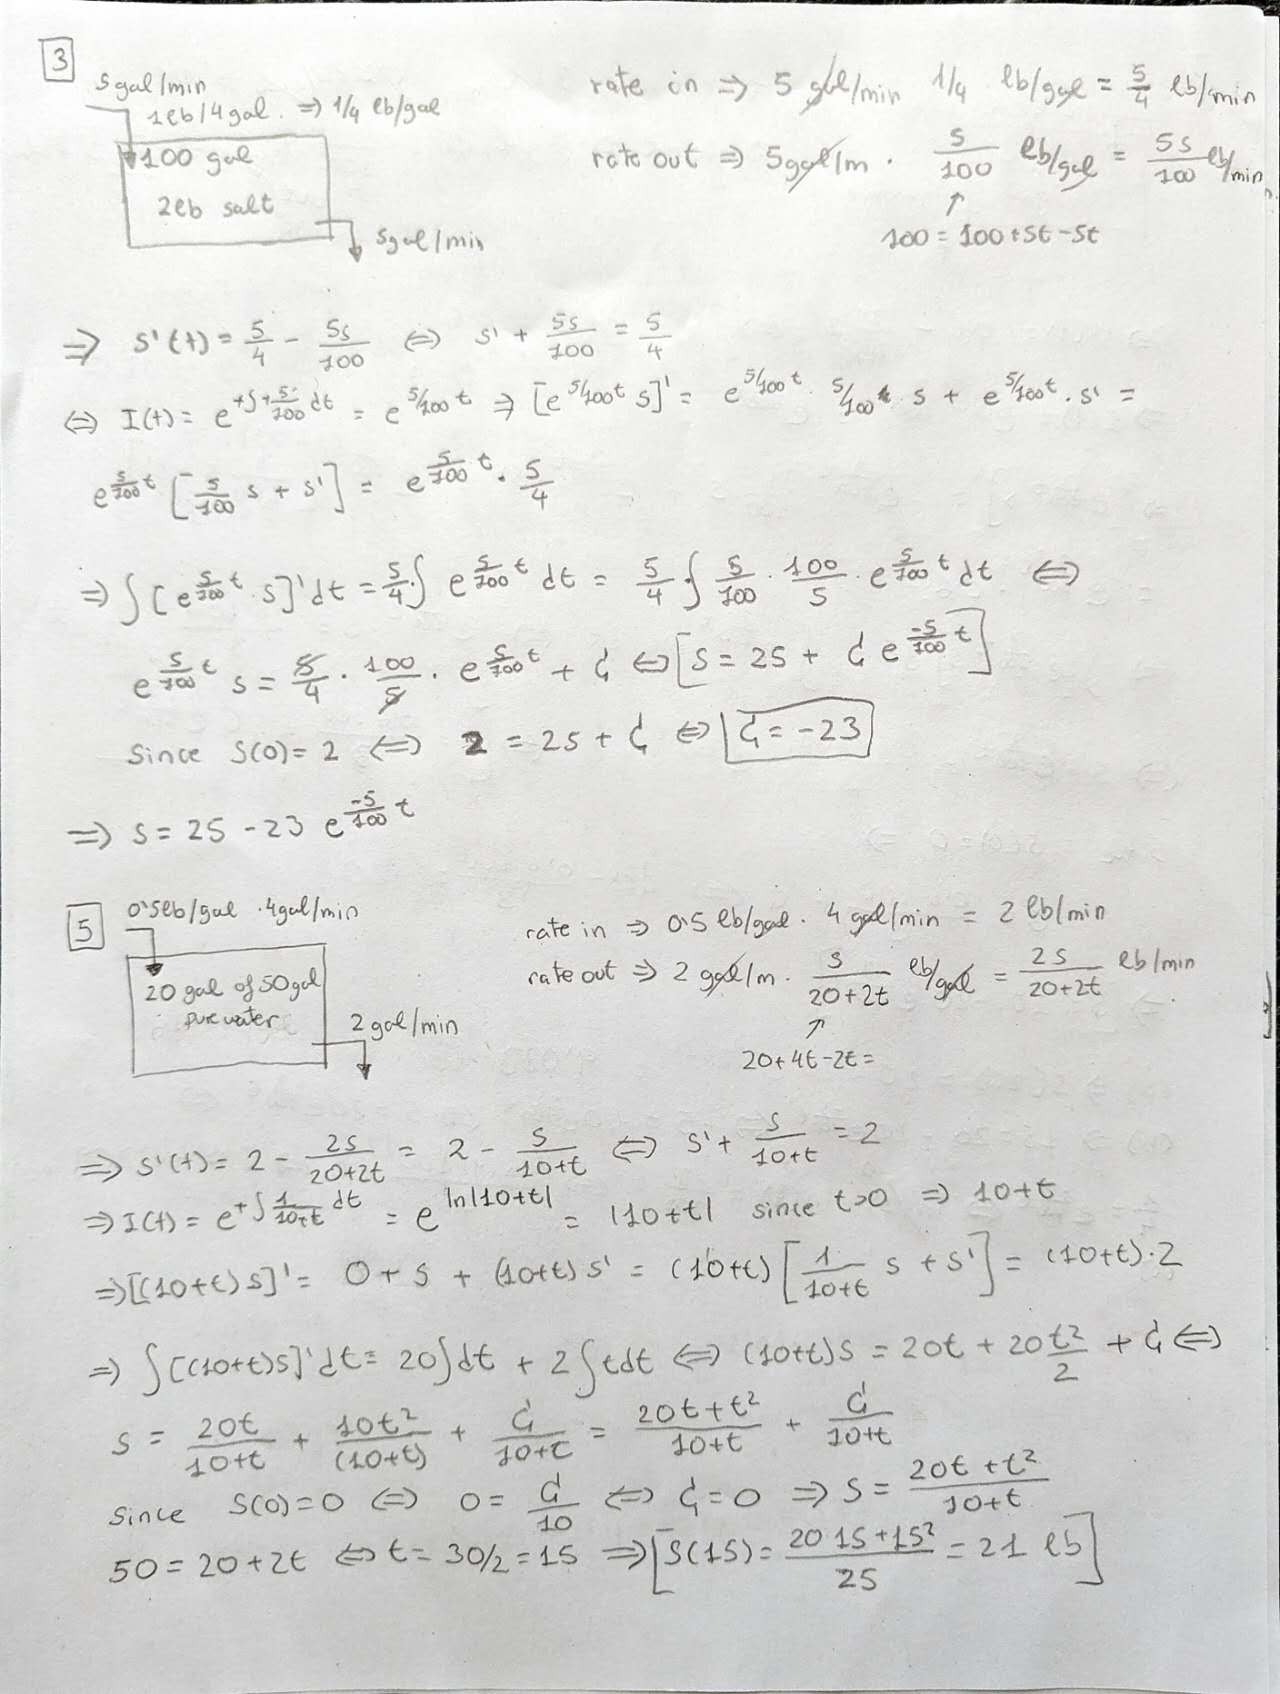 3
5gal/min
1lb/4gal. ⇒ 1/4 lb/gal
100 gal
2lb salt
5gal/min
rate in ⇒ 5 gal/min 1/4 lb/gal = 5/4 lb/min
rate out ⇒ 5gal/m · S/100 lb/gal = 5S/100 lb/min
↑
100 = 100+5t-5t
⇒ S'(t) = 5/4 - 5s/100 ⇔ s' + 5s/100 = 5/4
⇔ I(t) = e^{+∫+5/100 dt} = e^{5/100 t} ⇒ [e^{5/100 t} s]' = e^{5/100 t} · 5/100 · s + e^{5/100 t} · s' =
e^{5/100 t} [5/100 s + s'] = e^{5/100 t} · 5/4
⇒ ∫[e^{5/100 t} · s]' dt = 5/4 · ∫ e^{5/100 t} dt = 5/4 ∫ 5/100 · 100/5 · e^{5/100 t} dt ⇔
e^{5/100 t} s = 5/4 · 100/5 · e^{5/100 t} + C ⇔ [s = 25 + C e^{-5/100 t}]
Since S(0) = 2 ⇔ 2 = 25 + C ⇔ C = -23
⇒ S = 25 - 23 e^{-5/100 t}
5
0.5lb/gal · 4gal/min
20 gal of 50gal
pure water
2 gal/min
rate in ⇒ 0.5 lb/gal · 4 gal/min = 2 lb/min
rate out ⇒ 2 gal/m · S/20+2t lb/gal = 2S/20+2t lb/min
↑
20+4t-2t=
⇒ S'(t) = 2 - 2s/20+2t = 2 - s/10+t ⇔ s' + s/10+t = 2
⇒ I(t) = e^{+∫ 1/10+t dt} = e^{ln|10+t|} = |10+t| since t>0 ⇒ 10+t
⇒ [(10+t) s]' = 0+s + (10+t) s' = (10+t) [1/10+t s + s'] = (10+t)·2
⇒ ∫[(10+t)s]' dt = 20∫dt + 2∫tdt ⇔ (10+t)s = 20t + 20t²/2 + C ⇔
s = 20t/10+t + 10t²/(10+t) + C/10+t = 20t+t²/10+t + C/10+t
Since S(0)=0 ⇔ 0 = C/10 ⇔ C=0 ⇒ S = 20t+t²/10+t
50 = 20+2t ⇔ t = 30/2 = 15 ⇒ [S(15) = 20 15+15²/25 = 21 lb]